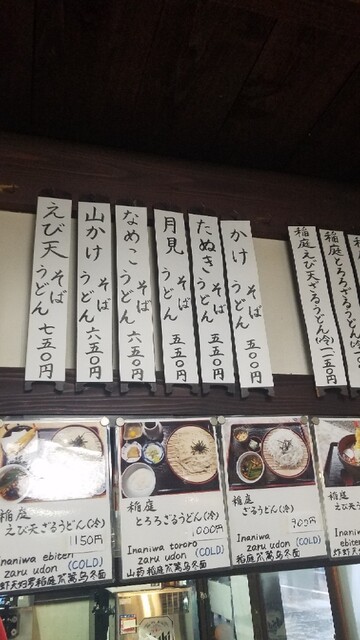 かけ そば うどん 五五〇円
たぬき そば うどん 五五〇円
月見 そば うどん 五五〇円
なめこ そば うどん 六五〇円
山かけ そば うどん 六五〇円
えび天 そば うどん 七五〇円
稲庭とろろざるうどん(冷)
稲庭えび天ざるうどん(冷) 一一五〇円
稲庭
えび天ざるうどん(冷)
1150円
Inaniwa ebiten
zaru udon (COLD)
稲庭
とろろざるうどん(冷)
1000円
Inaniwa tororo
zaru udon (COLD)
山药稲庭
稲庭
ざるうどん(冷)
900円
Inaniwa
zaru udon (COLD)
稲庭
Inaniwa